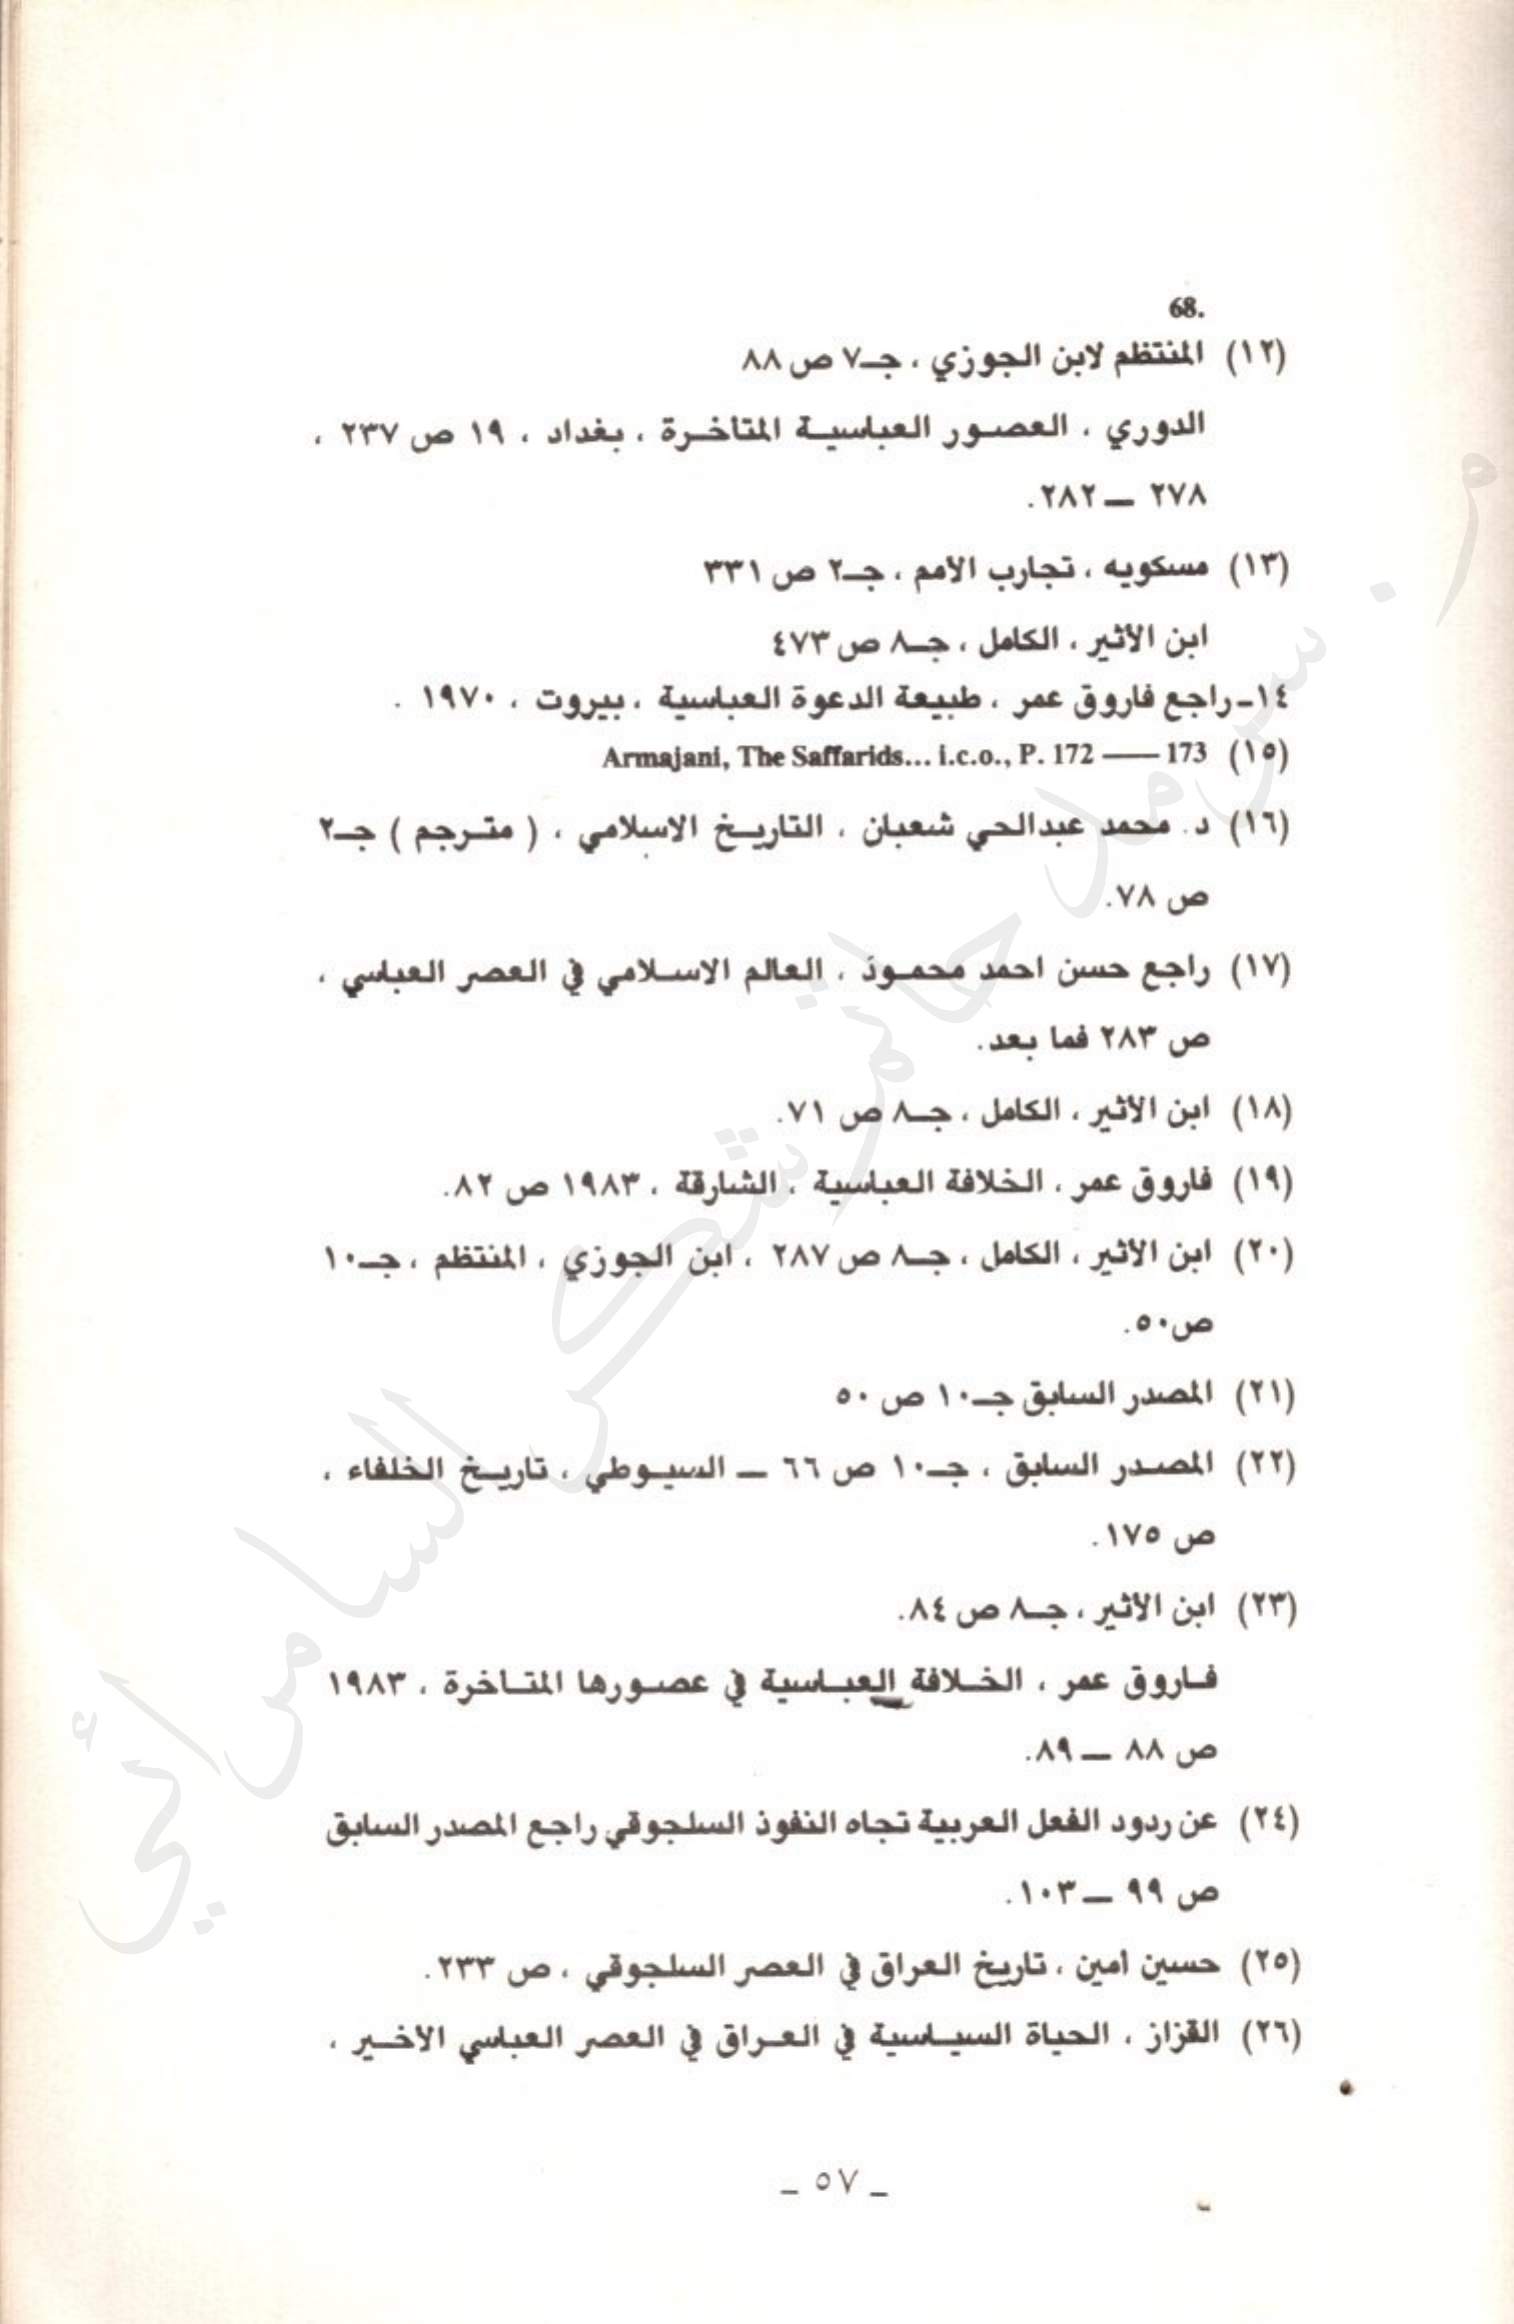 68.
(١٢) المنتظم لابن الجوزي ، جـ٧ ص ٨٨
الدوري ، العصور العباسية المتأخرة ، بغداد ، ١٩ ص ٢٣٧ ،
٢٧٨ ــ ٢٨٢.
(١٣) مسكويه ، تجارب الأمم ، جـ٢ ص ٣٣١
ابن الأثير ، الكامل ، جـ٨ ص ٤٧٣
١٤ـ راجع فاروق عمر ، طبيعة الدعوة العباسية ، بيروت ، ١٩٧٠ .
(١٥) Armajani, The Saffarids... i.c.o., P. 172 —— 173
(١٦) د. محمد عبدالحي شعبان ، التاريخ الاسلامي ، ( مترجم ) جـ٢
ص ٧٨.
(١٧) راجع حسن احمد محمود ، العالم الاسلامي في العصر العباسي ،
ص ٢٨٣ فما بعد.
(١٨) ابن الأثير ، الكامل ، جـ٨ ص ٧١.
(١٩) فاروق عمر ، الخلافة العباسية ، الشارقة ، ١٩٨٣ ص ٨٢.
(٢٠) ابن الأثير ، الكامل ، جـ٨ ص ٢٨٧ ، ابن الجوزي ، المنتظم ، جـ١٠
ص٥٠.
(٢١) المصدر السابق جـ١٠ ص ٥٠
(٢٢) المصدر السابق ، جـ١٠ ص ٦٦ ــ السيوطي ، تاريخ الخلفاء ،
ص ١٧٥.
(٢٣) ابن الأثير ، جـ٨ ص ٨٤.
فاروق عمر ، الخلافة العباسية في عصورها المتأخرة ، ١٩٨٣
ص ٨٨ ــ ٨٩.
(٢٤) عن ردود الفعل العربية تجاه النفوذ السلجوقي راجع المصدر السابق
ص ٩٩ ــ ١٠٣.
(٢٥) حسين أمين ، تاريخ العراق في العصر السلجوقي ، ص ٢٣٣.
(٢٦) القزاز ، الحياة السياسية في العراق في العصر العباسي الأخير ،
ـ ٥٧ ـ
م. سرمد حاتم شكر السامرائي